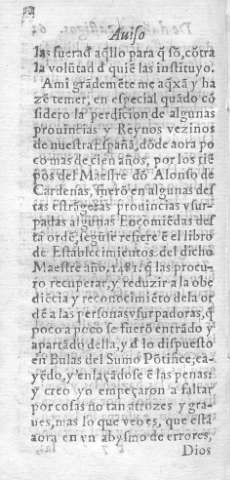 Auiso
las fuerad aqllo para q sō, cōtra
la volūtad d quiē las instituyo.
Ami grādemēte me aqxā y ha
zē temer, en especial quādo cō
sidero la perdicion de algunas
prouincias y Reynos vezinos
de nuestra España, dōde aora po
co mas de cien años, por los tiē
pos del Maestre dō Alonso de
Cardenas, fuerō en algunas des
tas estrāgeras prouincias vsur-
padas algunas Encomiēdas des
ta ordē, segūse refiere ē el libro
de Establecimientos del dicho
Maestre año, 1481. q las procu-
ro recuperar, y reduzir a la obe
diēcia y reconocimiēto dela or
dē a las personas vsurpadoras, q
poco a poco se fuerō entrādo y
apartādo della, y d lo dispuesto
en Bulas del Sumo Pōtifice; ca-
yēdo, y enlaçādose ē las penas:
y creo yo empeçaron a faltar
por cosas nō tan atrozes y gra-
ues, mas lo que veo es, que estā
aora en vn abysmo de errores,
Dios